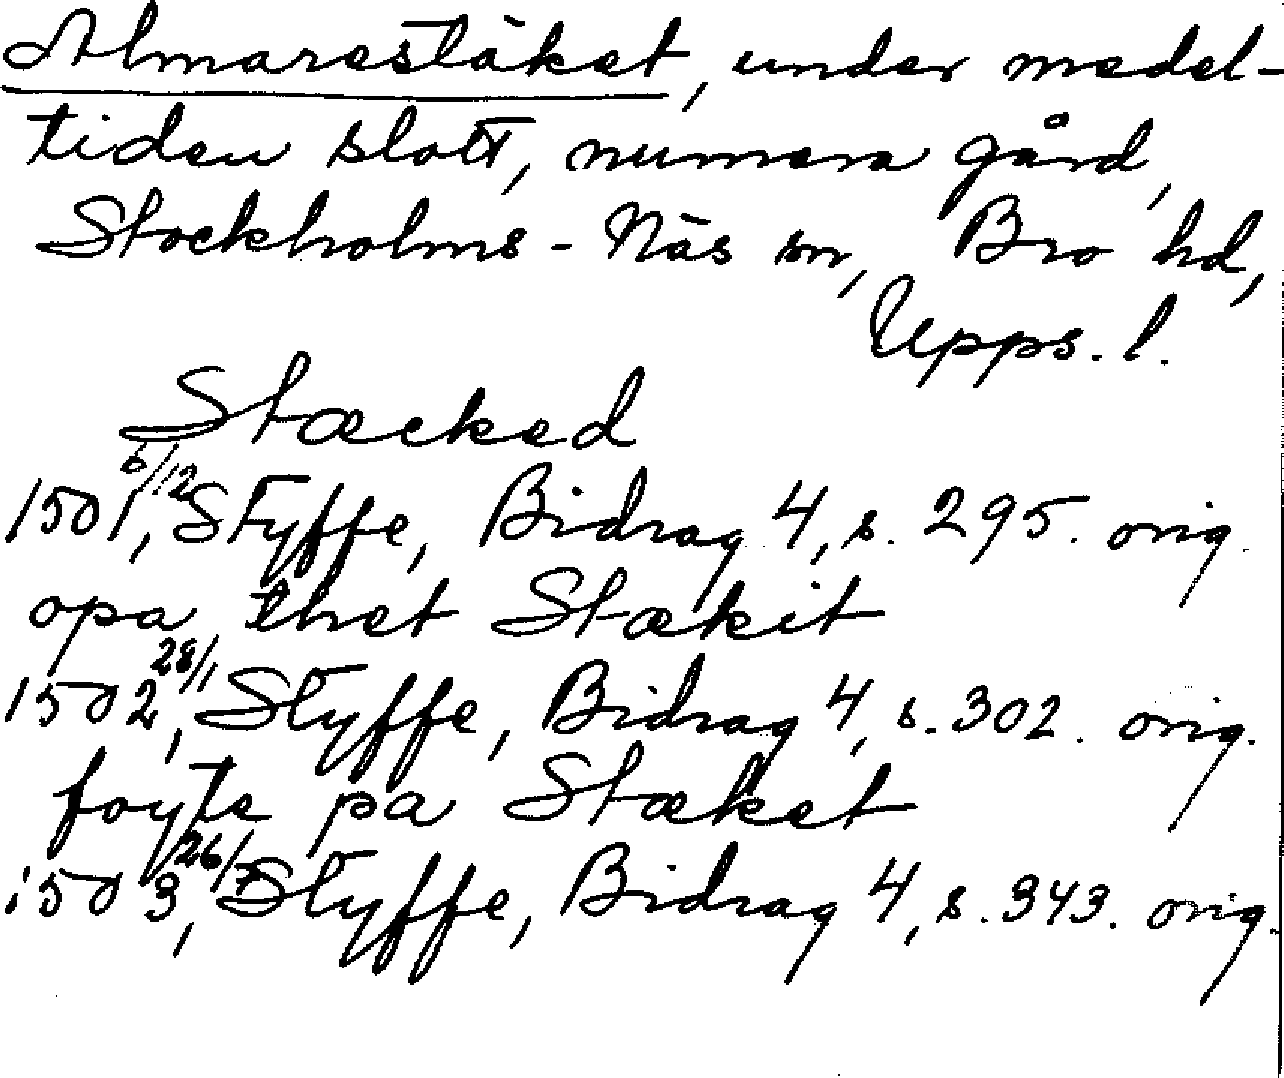 Almarestäket, under medel-
tiden slott, numera gård,
Stockholms-Näs sn, Bro hd,
Upps. l.
Stæcked
1501 6/12, Styffe, Bidrag 4, s. 295. orig.
opa thet Stækit
1502 28/1, Styffe, Bidrag 4, s. 302. orig.
foyte pa Stæket
1503 26/7, Styffe, Bidrag 4, s. 343. orig.